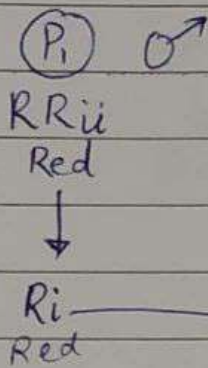 P₁ ♂
RRii
Red
↓
Ri
Red